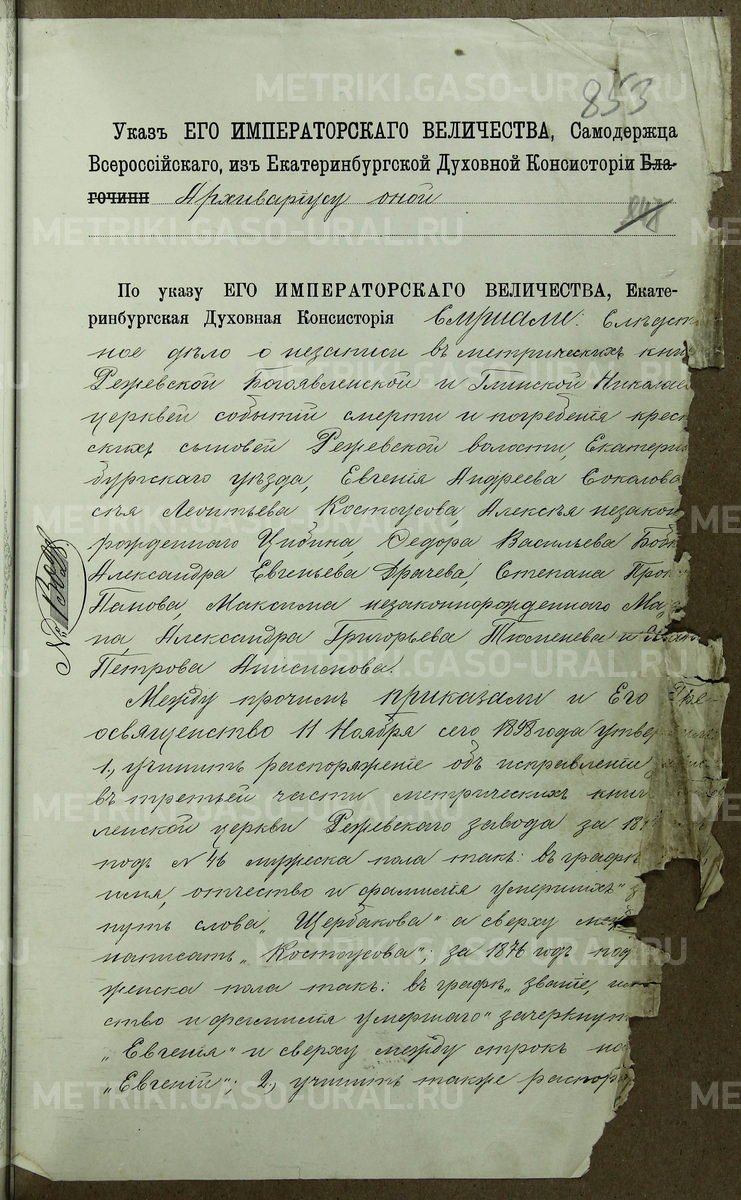 853
Указъ ЕГО ИМПЕРАТОРСКАГО ВЕЛИЧЕСТВА, Самодержца
Всероссійскаго, изъ Екатеринбургской Духовной Консисторіи Бла-
гочинн Архиваріусу оной
848
По указу ЕГО ИМПЕРАТОРСКАГО ВЕЛИЧЕСТВА, Екате-
ринбургская Духовная Консисторія Слушали: Слѣдст
ное дѣло о незаписи въ метрическихъ кни
Режевской Богоявленской и Глинской Николае
церквей событій смерти и погребенія крест
скихъ сыновей Режевской волости, Екатерин
бургскаго уѣзда, Евгенія Андреева Соколова
сѣя Леонтьева Костоусова, Алексѣя незакон
рожденнаго Цибина, Ѳедора Васильева
Александра Евгеньева Драчева, Степана Прок
Панова, Максима незаконнорожденнаго
на, Александра Григорьева Тюменева и
Петрова Анисимова.
№
Между прочимъ приказали и Его Пре-
освященство 11 Ноября сего 1898 года утвер
1., учинить распоряженіе объ исправленіи
въ третьей части метрическихъ книг
ленской церкви Режевскаго завода за 18
подъ № 46 мужеска пола такъ: въ графѣ
имя, отчество и фамилія умершихъ"
нуть слова „Щербакова" а сверху меж
написать „Костоусова"; за 1876 годъ под
женска пола такъ: въ графѣ „званіе,
ство и фамилія умершаго" зачеркнут
„Евгенія" и сверху между строкъ на
„Евгеній"; 2., учинить также распор
METRIKI.GASO-URAL.RU